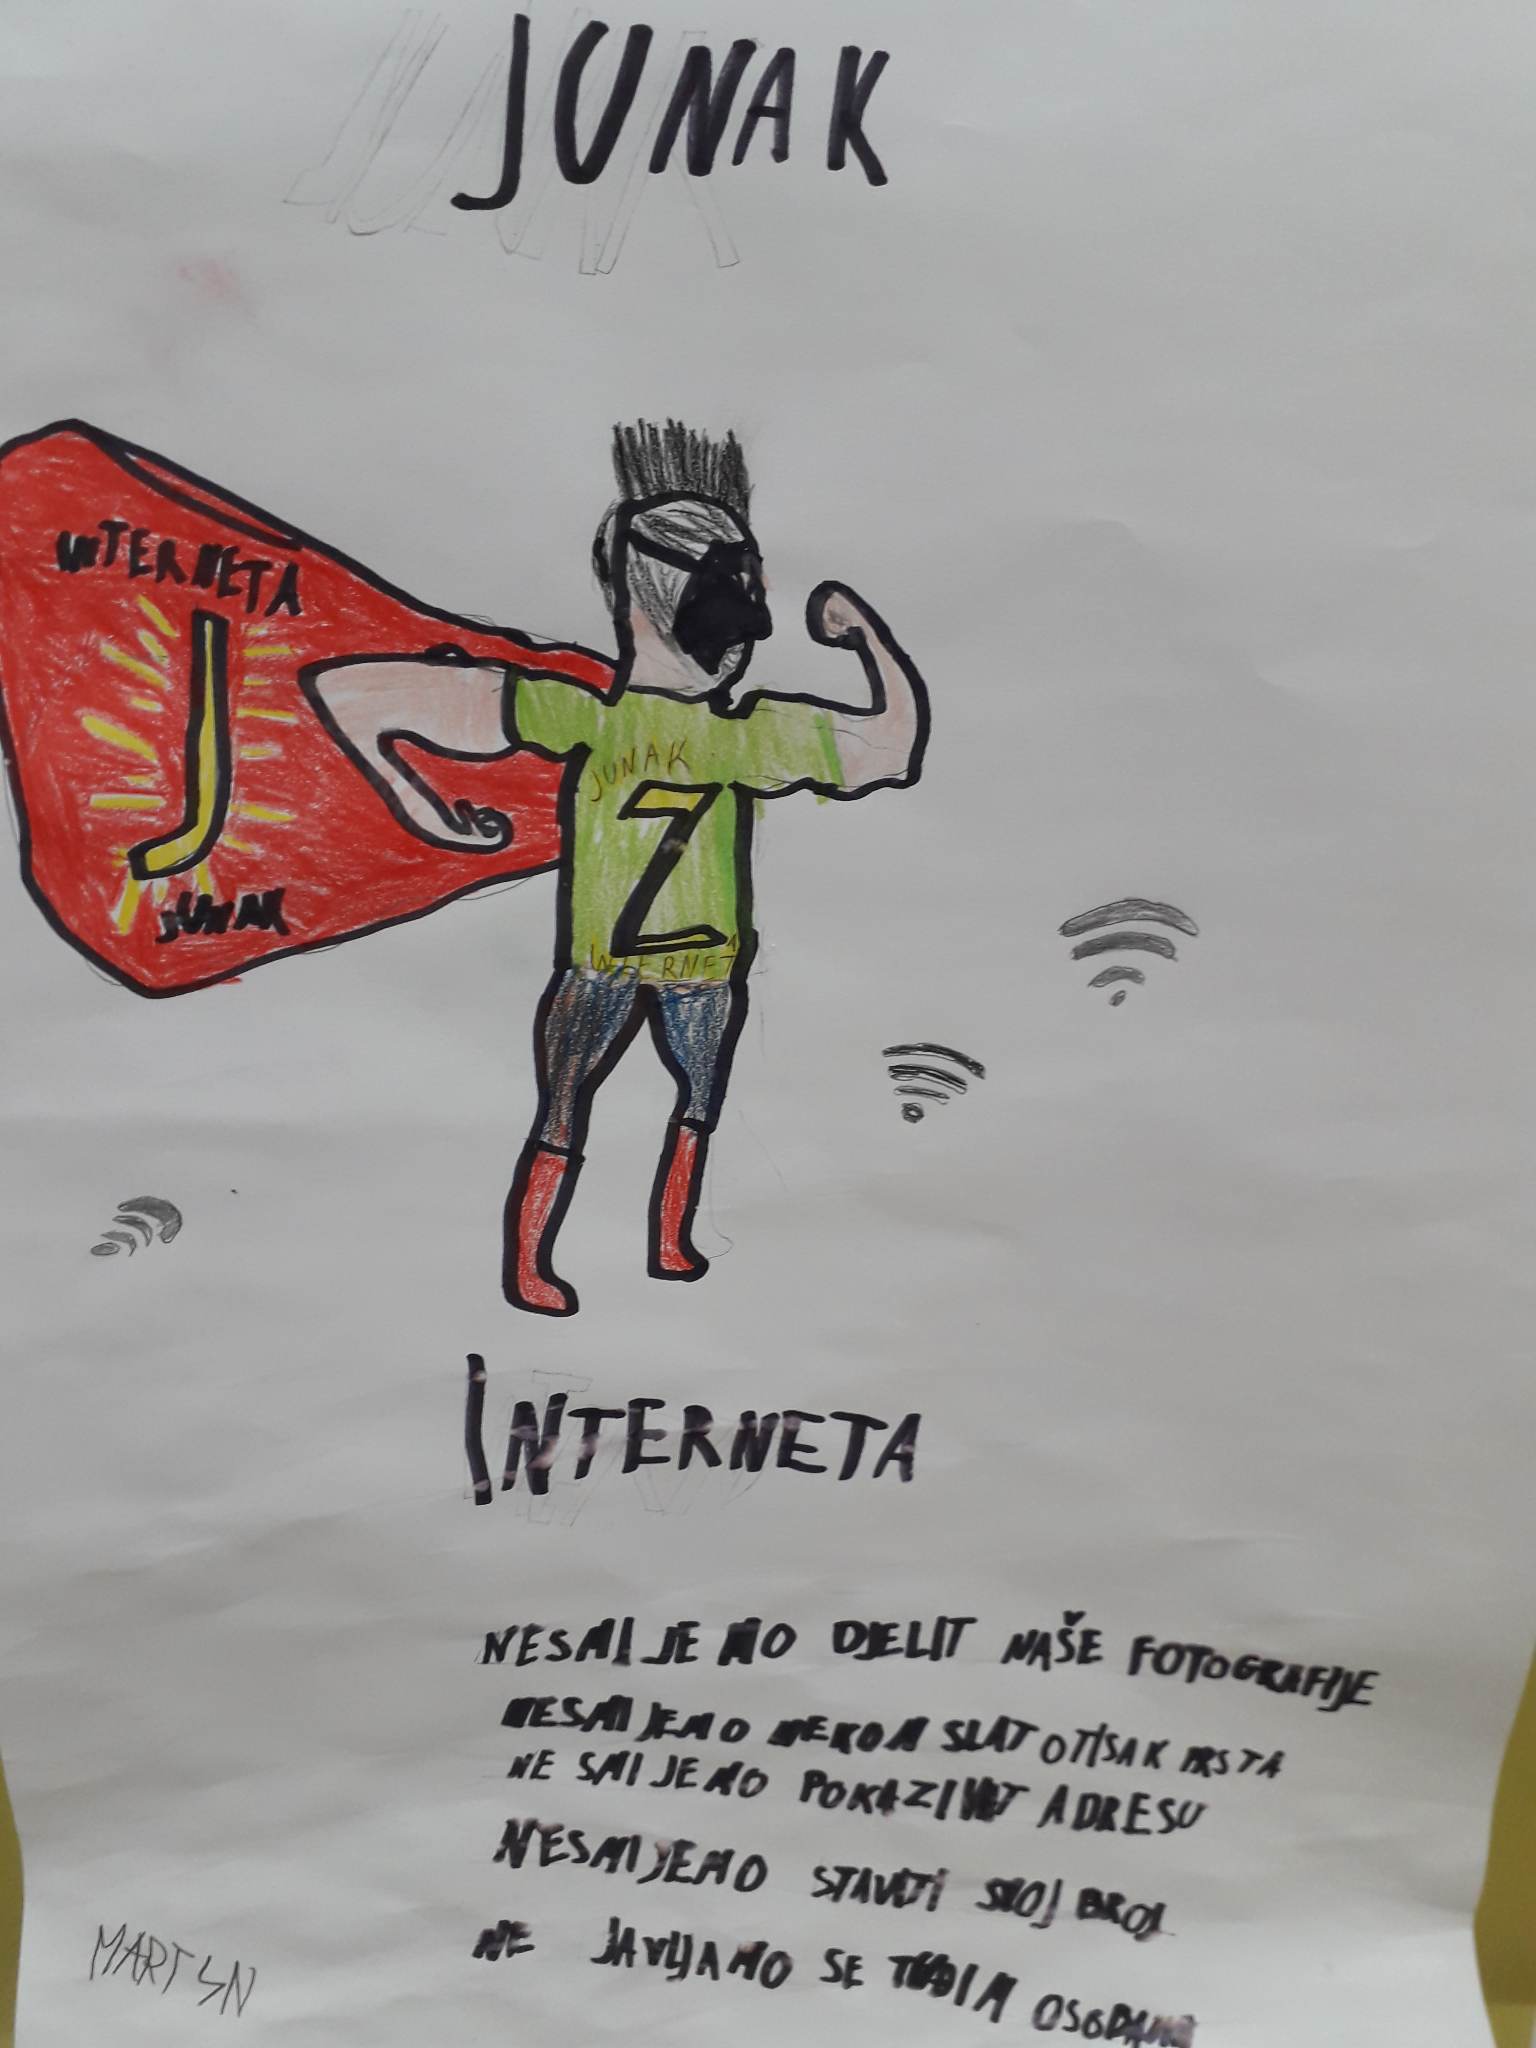 JUNAK
INTERNETA
J
JUNAK
JUNAK
Z
INTERNETA
INTERNETA
NESMIJEMO DJELIT NAŠE FOTOGRAFIJE
NESMIJEMO NEKOM SLAT OTISAK PRSTA
NE SMIJEMO POKAZIVAT ADRESU
NESMIJEMO STAVITI SVOJ BROJ
NE JAVLJAMO SE TUĐIM OSOBAMA
MARTIN